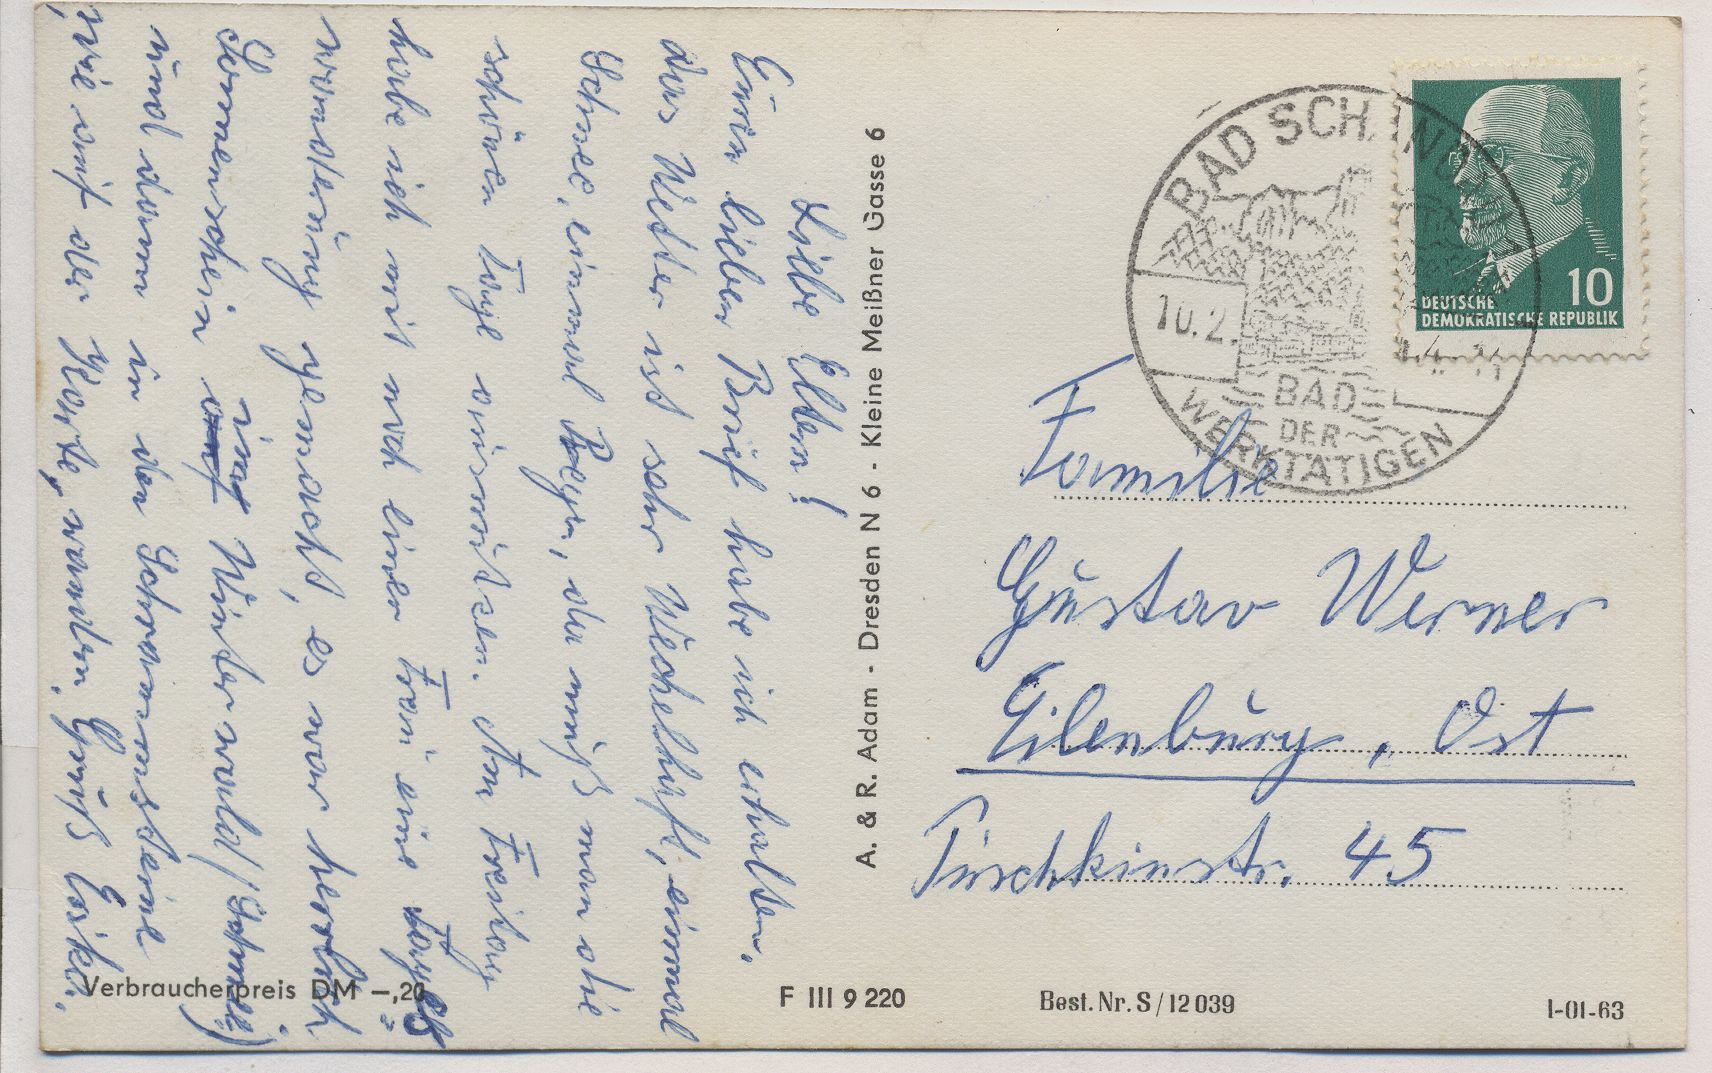 Liebe Eltern!
Euren lieben Brief habe ich erhalten.
Das Wetter ist sehr wechelhaft, einmal
Schnee, einmal Regen, da muß man die
schönen Tage ausnutzen. Am Freitag
habe ich mit noch einer Frau eine Tages=
wanderung gemacht, es war herrlich
Sonnenschein auf im Winterwald (Schnee)
und dann in den Schrammsteine
wie auf der Karte, wandern. Gruß
A. & R. Adam - Dresden N 6 - Kleine Meißner Gasse 6
BAD SCHANDAU
10.2.
BAD
DER
WERKTÄTIGEN
10
DEUTSCHE
DEMOKRATISCHE REPUBLIK
Familie
Gustav Werner
Eilenburg, Ost
Puschkinstr. 45
Verbraucherpreis DM –,20
F III 9 220
Best. Nr. S/12 039
I-01-63